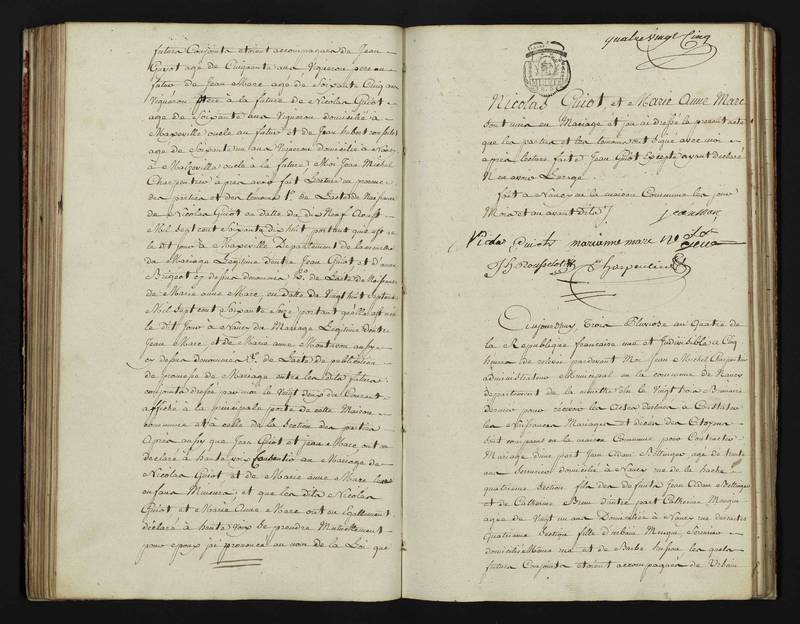 futurs Conjoints étoient accompagnés de Jean
Guiot agé de Cinquante ans Vigneron pere au
futur de Jean Marc agé de Soixante Cinq ans
Vigneron père à la future de Nicolas Guiot
agé de Soixante ans Vigneron domicilié à
Maxeville oncle au futur et de Jean hubert
agé de Soixante un ans Vigneron domicilié à
à Malzeville oncle à la future; Moi Jean Michel
Charpentier après avoir fait Lecture en presence
des parties et des temoins 1o. de L'acte de Naissance
de Nicolas Guiot en datte du dix Neuf Aoust
Mil Sept cent Soixante dix huit portant que est né
le dit jour à Maxeville Département de la meurthe
du Mariage Légitime d'entre Jean Guiot et d'anne
Brigeot cy dessus denommés 2o. de L'acte de Naissance
de Marie anne Marc, en datte du Vingt huit Septembre
Mil Sept cent Soixante Seize, portant qu'elle est née
le dit Jour à Nancy du Mariage Légitime d'entre
Jean Marc, et de Marie anne aussy
cy dessus denommés 3o. de L'acte de publication
de promesse de Mariage entre les dits futurs
conjoints dressé par moi le Vingt deux du Courant
affiché à la principale porte de cette Maison
commune et à celle de la Section des parties
Après aussy que Jean Guiot et jean Marc ont
déclaré à haute voix Consentir au Mariage de
Nicolas Guiot et de Marie anne Marc leurs
enfans Mineurs, et que les dits Nicolas
Guiot et Marie Anne Marc ont eu Egallement
déclaré à haute voix Se prendre Mutuellement
pour epoux j'ai prononcé au nom de la Loi que
quatre vingt Cinq
Nicolas Guiot et Marie Anne Marc
sont unis en Mariage et j'en ai dressé le present acte
que les parties et les temoins ont Signé avec moi
après lecture faite Jean Guiot Excepté ayant declaré
N'en avoir L'usage.
fait à Nancy en la maison Commune les jour
Mois et an avant dits /. jean Marc
Nicolas Guiot marianne marc
Charpentier
Aujourdhuy Trois Pluviose an Quatre de
la République francaise une et Indivisible à Cinq
heures de relevée pardevant Moi Jean Michel Charpentier
administrateur Municipal en la commune de Nancy
département de la meurthe élu le Vingt trois Brumaire
dernier pour recevoir les Actes destinés à Constater
les Naissances Mariages et décès des Citoyens
Sont comparus en la maison Commune pour Contracter
Mariage d'une part Jean Adam Bettinger agé de trente
ans Serrurier domicilié à Nancy rue de la hache
quatrieme Section fils des defunts Jean Adam Bettinger
et de Catherine d'autre part Catherine
agée de Vingt un ans Domiciliée à Nancy rue
Quatrieme Section fille d'urbain Serrurier
domicilié Même rue et de Barbe les quels
futurs Conjoints étoient accompagnés de Urbain